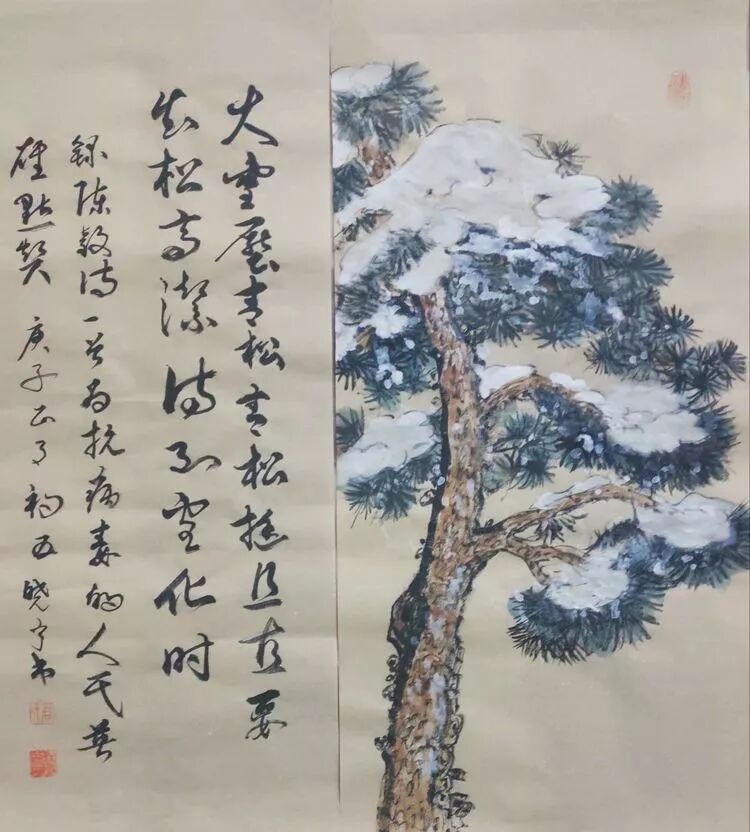 大雪壓青松青松挺且直要
知松高潔待到雪化时
録陈毅诗一首为抗病毒的人民英
雄點赞 庚子正月初五晓宁书